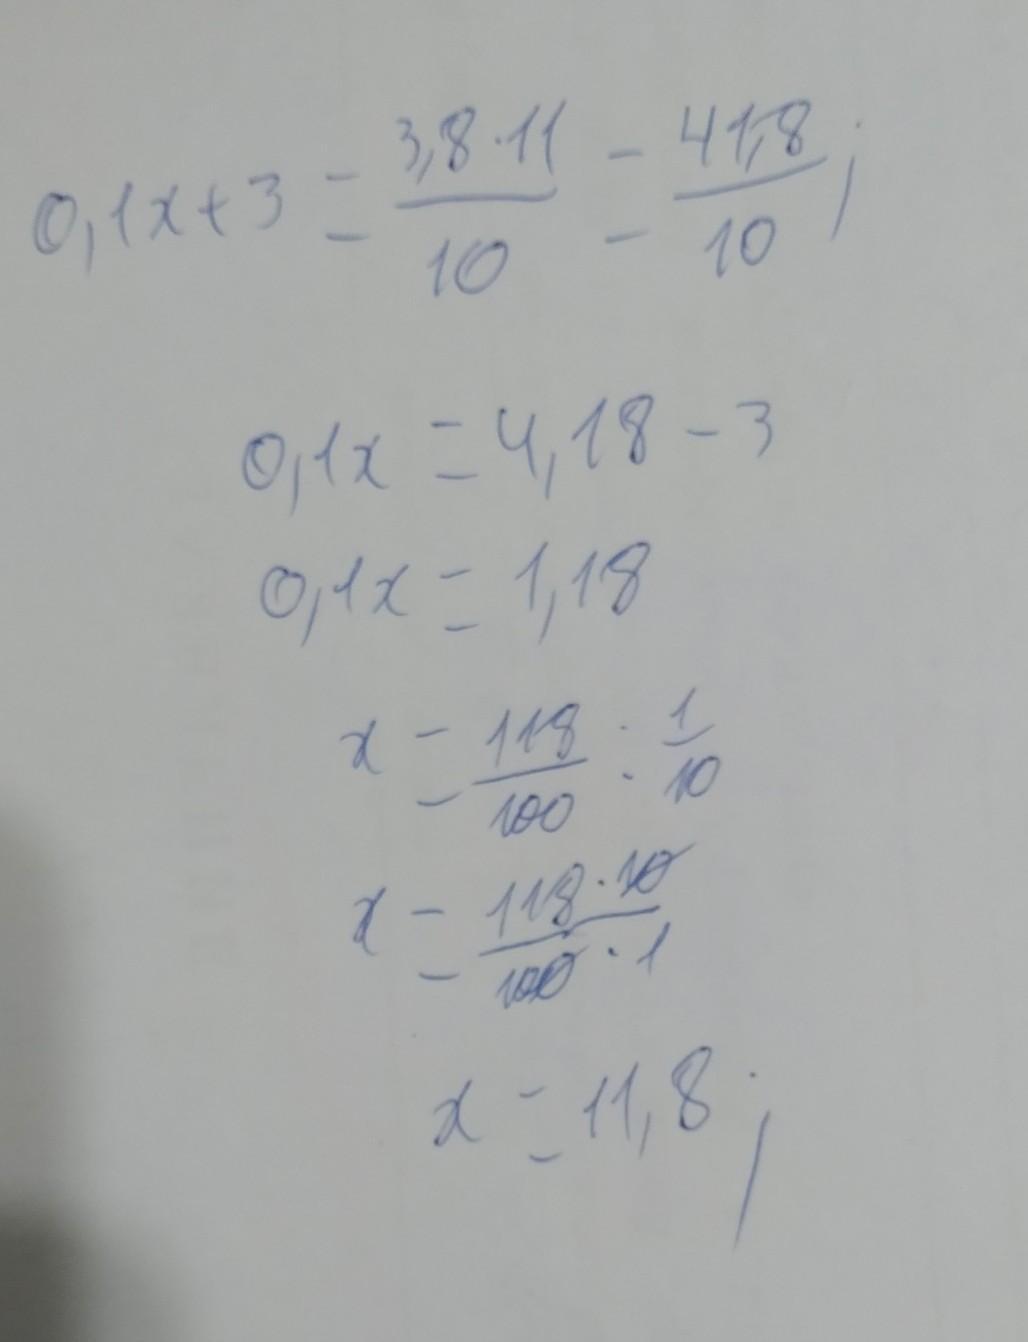 0,1x+3 = 3,8·11/10 = 41,8/10;
0,1x = 4,18 - 3
0,1x = 1,18
x = 118/100 : 1/10
x = 118·10/100·1
x = 11,8;